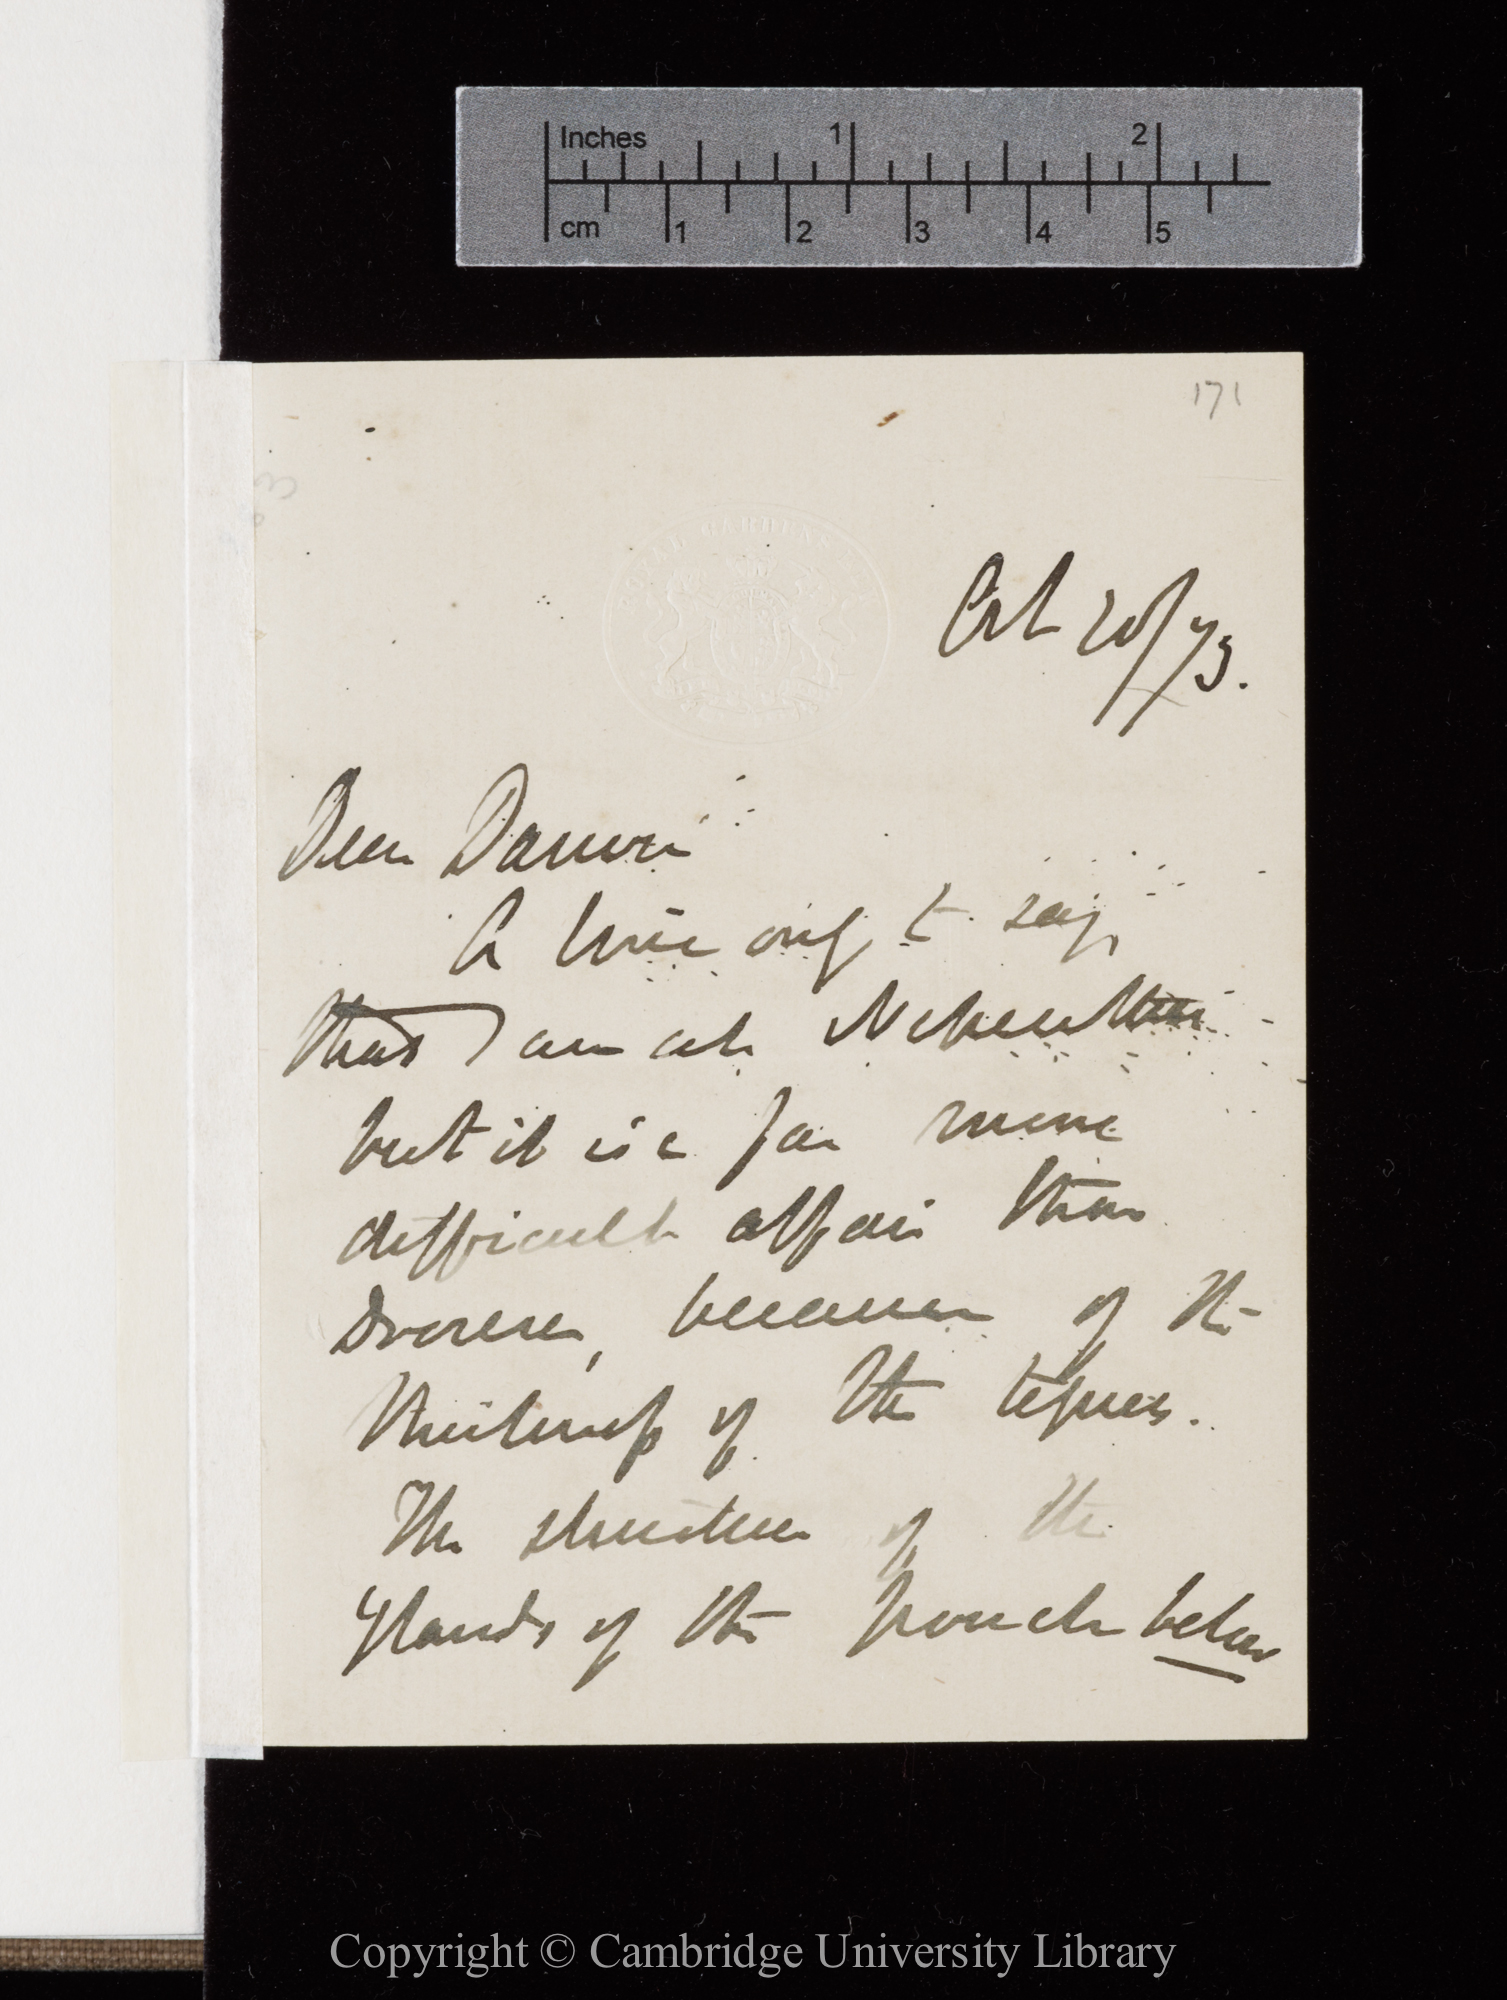 Inches 1 2
cm 1 2 3 4 5
171
ROYAL GARDENS KEW
Oct 20/73.
Dear Darwin
A line only to say,
that I am at Nepenthes
but it is a far more
difficult affair than
Drosera, because of the
thickness of the tissues.
The structure of the
glands of the pouch below
Copyright © Cambridge University Library